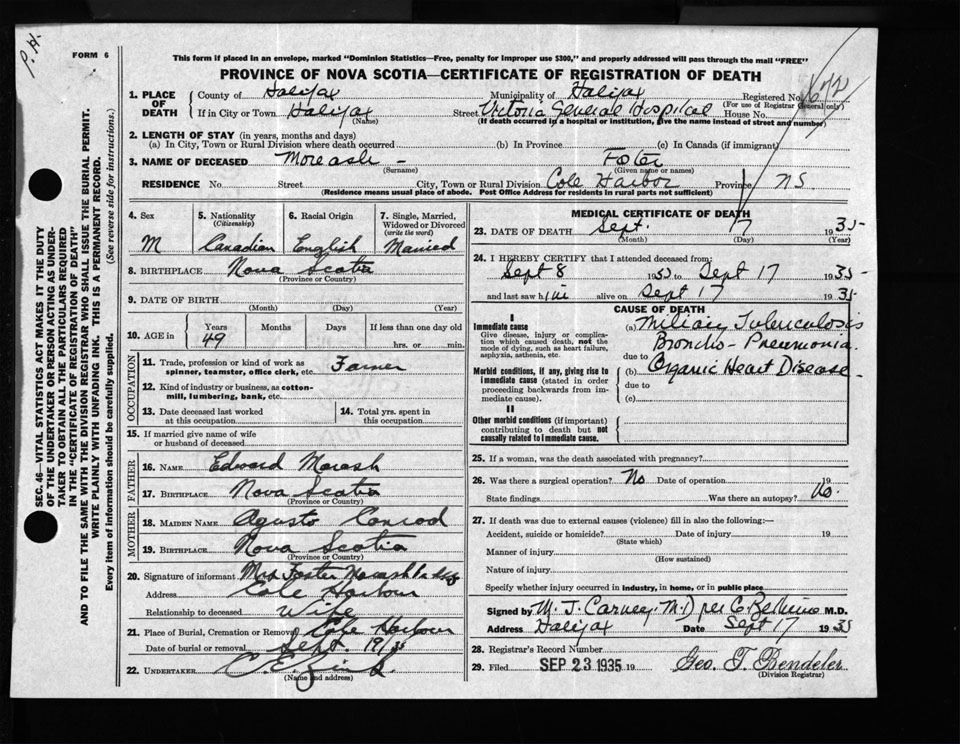 P. H.
FORM 6
This form if placed in an envelope, marked "Dominion Statistics—Free, penalty for improper use $300," and properly addressed will pass through the mail "FREE"
PROVINCE OF NOVA SCOTIA—CERTIFICATE OF REGISTRATION OF DEATH
SEC. 46—VITAL STATISTICS ACT MAKES IT THE DUTY
OF THE UNDERTAKER OR PERSON ACTING AS UNDER-
TAKER TO OBTAIN ALL THE PARTICULARS REQUIRED
IN THE "CERTIFICATE OF REGISTRATION OF DEATH"
AND TO FILE THE SAME WITH THE DIVISION REGISTRAR WHO SHALL ISSUE THE BURIAL PERMIT.
WRITE PLAINLY WITH UNFADING INK. THIS IS A PERMANENT RECORD.
Every item of information should be carefully supplied. (See reverse side for instructions.)
1. PLACE OF DEATH
County of Halifax Municipality of Halifax Registered No. 672
(For use of Registrar General only)
If in City or Town Halifax Street Victoria General Hospital House No.
(Name) (If death occurred in a hospital or institution, give the name instead of street and number)
2. LENGTH OF STAY (in years, months and days)
(a) In City, Town or Rural Division where death occurred (b) In Province (c) In Canada (if immigrant)
3. NAME OF DECEASED Moreash - Foster
(Surname) (Given name or names)
RESIDENCE No. Street City, Town or Rural Division Cole Harbor Province NS
(Residence means usual place of abode. Post Office Address for residents in rural parts not sufficient)
4. Sex M
5. Nationality (Citizenship) Canadian
6. Racial Origin English
7. Single, Married, Widowed or Divorced (write the word) Married
8. BIRTHPLACE Nova Scotia
(Province or Country)
9. DATE OF BIRTH
(Month) (Day) (Year)
10. AGE in Years 49 Months Days If less than one day old
hrs. or min.
OCCUPATION
11. Trade, profession or kind of work as spinner, teamster, office clerk, etc. Farmer
12. Kind of industry or business, as cotton-mill, lumbering, bank, etc.
13. Date deceased last worked at this occupation
14. Total yrs. spent in this occupation
15. If married give name of wife or husband of deceased
FATHER
16. NAME Edward Marash
17. BIRTHPLACE Nova Scotia
(Province or Country)
MOTHER
18. MAIDEN NAME Agusto Conrod
19. BIRTHPLACE Nova Scotia
(Province or Country)
20. Signature of informant Mrs Foster Marash
Address Cole Harbour
Relationship to deceased Wife
21. Place of Burial, Cremation or Removal Cole Harbour
Date of burial or removal Sept. 19/35
22. UNDERTAKER C. E. Zink
(Name and address)
MEDICAL CERTIFICATE OF DEATH
23. DATE OF DEATH Sept. 17 1935
(Month) (Day) (Year)
24. I HEREBY CERTIFY that I attended deceased from:
Sept 8 1935 to Sept 17 1935
and last saw him alive on Sept 17 1935
CAUSE OF DEATH
I
Immediate cause
Give disease, injury or complication which caused death, not the mode of dying, such as heart failure, asphyxia, asthenia, etc.
(a) Miliary Tuberculosis
Broncho-Pneumonia.
due to
Morbid conditions, if any, giving rise to immediate cause (stated in order proceeding backwards from immediate cause).
(b) Organic Heart Disease -
due to
(c)
II
Other morbid conditions (if important) contributing to death but not causally related to immediate cause.
25. If a woman, was the death associated with pregnancy?
26. Was there a surgical operation? No Date of operation 19
State findings Was there an autopsy? No.
27. If death was due to external causes (violence) fill in also the following:—
Accident, suicide or homicide? Date of injury 19
(State which)
Manner of injury
(How sustained)
Nature of injury
Specify whether injury occurred in industry, in home, or in public place
Signed by M. J. Carney, M.D per M.D.
Address Halifax Date Sept 17 1935
28. Registrar's Record Number
29. Filed SEP 23 1935 19 Geo. T. Bendeler
(Division Registrar)